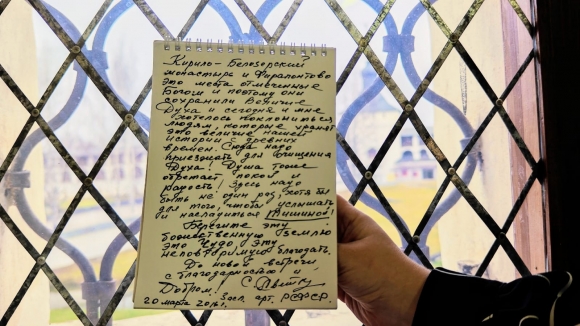 Кирило-Белозерский
монастырь и Ферапонтово
это места отмеченные
Богом и поэтому они
сохранили Величие
Духа и сегодня и мне
хотелось поклониться
людям, которые хранят
это величие нашей
истории с древних
времен. Сюда надо
приезжать для очищения
Духа! Душа тоже
обретает покой и
радость! Здесь надо
быть не один раз, хотя бы
для того, чтобы услышать
и насладиться
Берегите эту
божественную Землю
это Чудо, эту
неповторимую благодать.
До новой встречи
с благодарностью и
Добром! С.
20 марта Засл. арт. РСФСР.